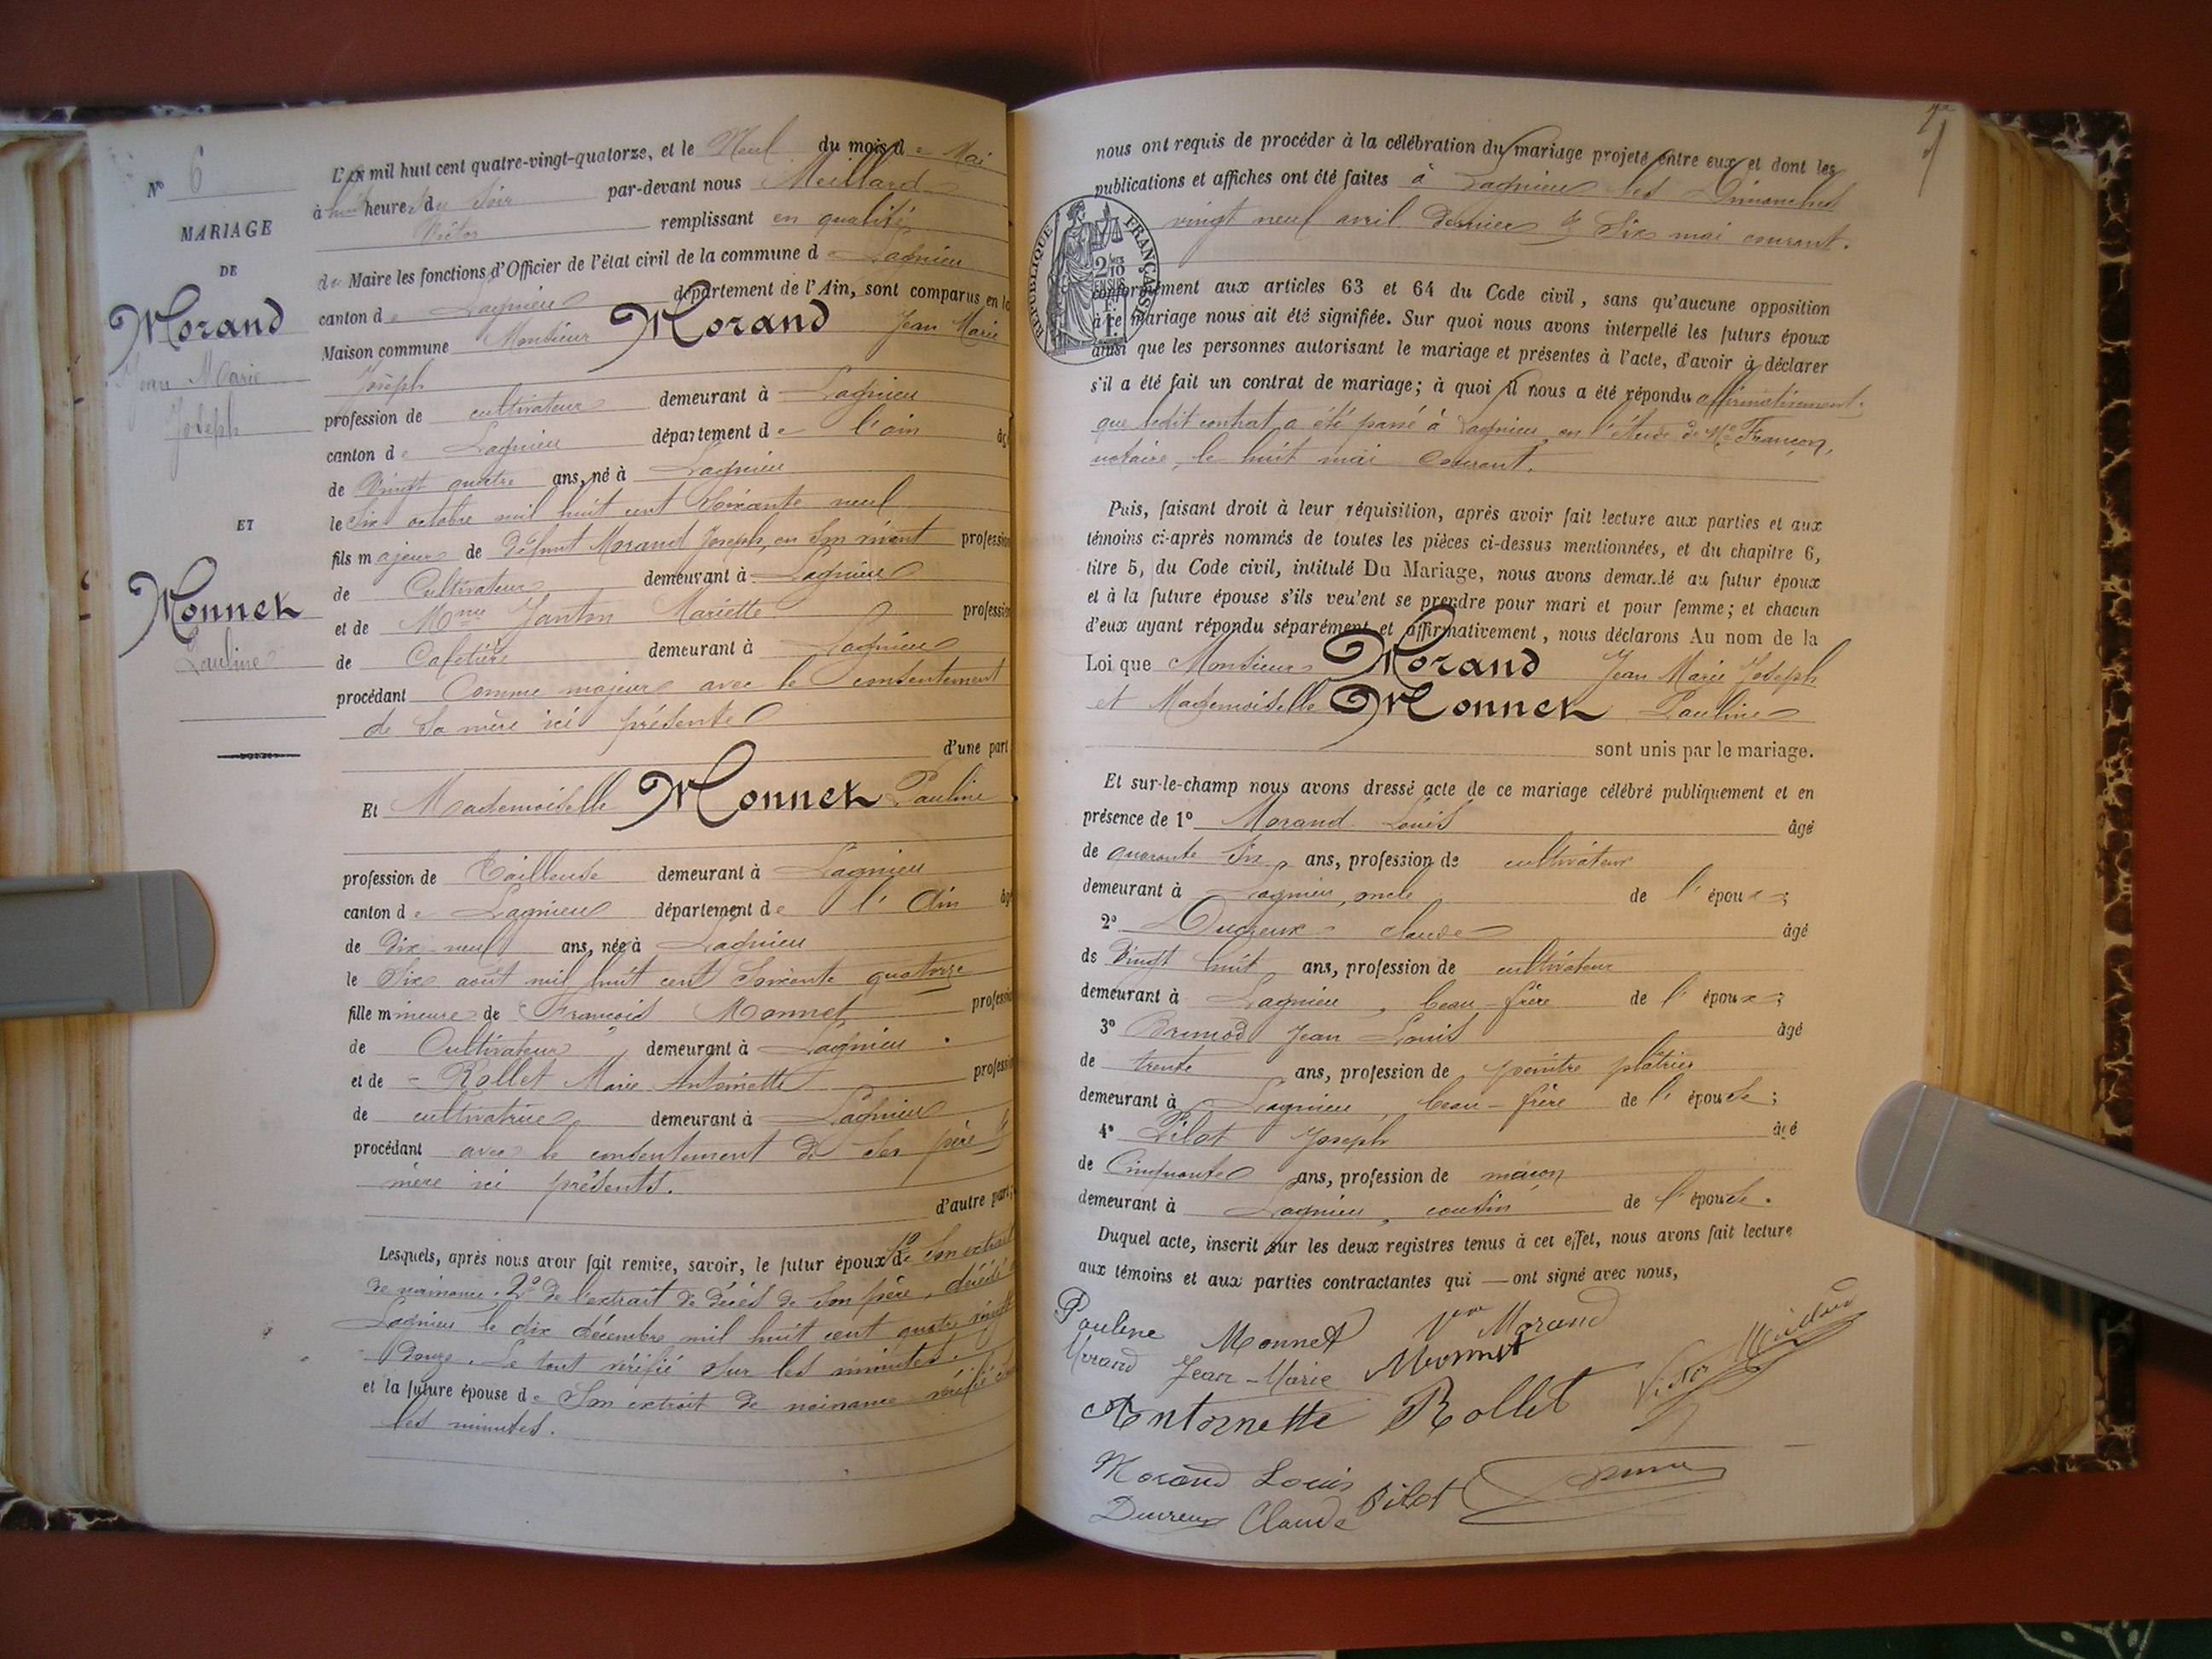 N° 6
MARIAGE
DE
Morand
Jean Marie
Joseph
ET
Monnet
Pauline
L'an mil huit cent quatre-vingt-quatorze, et le Neuf du mois de Mai
à huit heures du Soir par-devant nous Meilland
Victor remplissant en qualité
de Maire les fonctions d'Officier de l'état civil de la commune de Lagnieu
canton de Lagnieu département de l'Ain, sont comparus en la
Maison commune Monsieur Morand Jean Marie
Joseph
profession de cultivateur demeurant à Lagnieu
canton de Lagnieu département de l'ain âgé
de Vingt quatre ans, né à Lagnieu
le Six octobre mil huit cent Soixante neuf
fils majeur de Défunt Morand Joseph, en Son vivant profession
de Cultivateur demeurant à Lagnieu
et de Mme Jantin Mariette profession
de Cafetière demeurant à Lagnieu
procédant Comme majeur avec le consentement
de Sa mère ici présente
d'une part
Et Mademoiselle Monnet Pauline
profession de Tailleuse demeurant à Lagnieu
canton de Lagnieu département de l'Ain âgé
de Dix-neuf ans, née à Lagnieu
le Six août mil huit cent Soixante quatorze
fille mineure de François Monnet profession
de Cultivateur demeurant à Lagnieu.
et de Rollet Marie Antoinette profession
de cultivatrice demeurant à Lagnieu
procédant avec le consentement de Ses père &
mère ici présents.
d'autre part;
Lesquels, après nous avoir fait remise, savoir, le futur époux 1° de Son extrait
de naissance. 2° de l'extrait de décès de Son père, décédé à
Lagnieu le dix décembre mil huit cent quatre vingt
Douze. Le tout vérifié sur les minutes.
et la future épouse de Son extrait de naissance vérifié sur
les minutes.
nous ont requis de procéder à la célébration du mariage projeté entre eux et dont les
publications et affiches ont été faites à Lagnieu les Dimanches
vingt neuf avril Dernier & Six mai courant.
RÉPUBLIQUE FRANÇAISE
conformément aux articles 63 et 64 du Code civil, sans qu'aucune opposition
à ce mariage nous ait été signifiée. Sur quoi nous avons interpellé les futurs époux
ainsi que les personnes autorisant le mariage et présentes à l'acte, d'avoir à déclarer
s'il a été fait un contrat de mariage; à quoi il nous a été répondu affirmativement.
que ledit contrat a été passé à Lagnieu en l'étude de Me Françon,
notaire, le huit mai Courant.
Puis, faisant droit à leur réquisition, après avoir fait lecture aux parties et aux
témoins ci-après nommés de toutes les pièces ci-dessus mentionnées, et du chapitre 6,
titre 5, du Code civil, intitulé Du Mariage, nous avons demandé au futur époux
et à la future épouse s'ils veulent se prendre pour mari et pour femme; et chacun
d'eux ayant répondu séparément et affirmativement, nous déclarons Au nom de la
Loi que Monsieur Morand Jean Marie Joseph
et Mademoiselle Monnet Pauline
sont unis par le mariage.
Et sur-le-champ nous avons dressé acte de ce mariage célébré publiquement et en
présence de 1° Morand Louis âgé
de quarante Six ans, profession de cultivateur
demeurant à Lagnieu, oncle de l'époux;
2° Ducreux Claude âgé
de Vingt huit ans, profession de cultivateur
demeurant à Lagnieu, beau-frère de l'époux;
3° Brunod Jean Louis âgé
de trente ans, profession de peintre plâtrier
demeurant à Lagnieu, beau-frère de l'épouse;
4° Bilot Joseph âgé
de Cinquante ans, profession de maçon
demeurant à Lagnieu, cousin de l'épouse.
Duquel acte, inscrit sur les deux registres tenus à cet effet, nous avons fait lecture
aux témoins et aux parties contractantes qui — ont signé avec nous,
Pauline Monnet Vve Morand
Morand Jean-Marie Monnet Victor Meilland
Antoinette Rollet
Morand Louis
Ducreux Claude Bilot